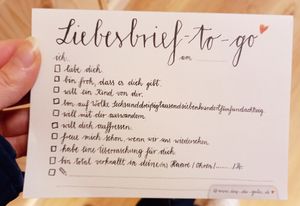 Liebesbrief-to-go
ich: am
liebe dich.
bin froh, dass es dich gibt.
will ein Kind von dir.
bin auf Wolke
will mit dir auswandern
will dich auffressen.
freue mich schon, wenn wir uns wiedersehen.
habe eine Überraschung für dich
bin total verknallt in deine/n Haare/Ohren/......./Po.